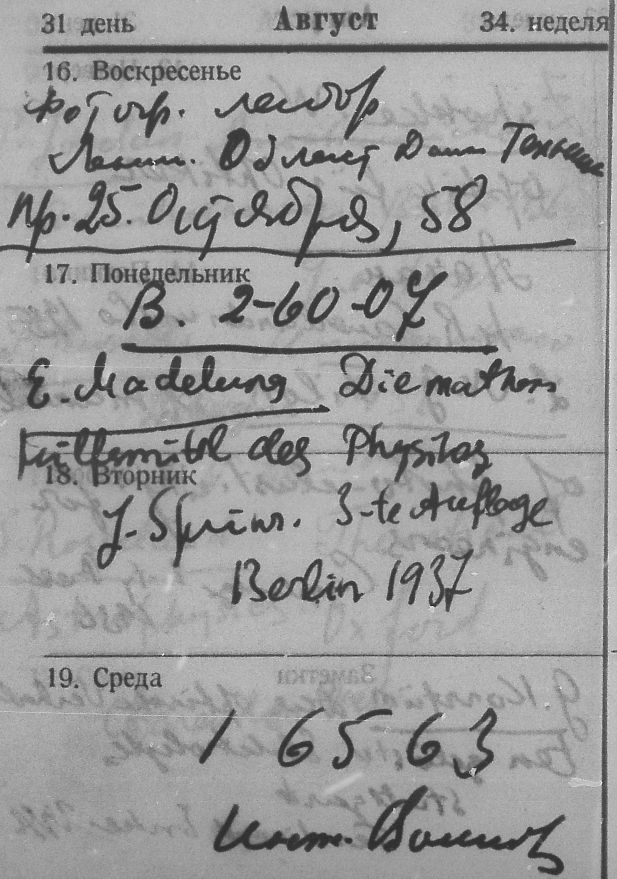 31 день Август 34. неделя
16. Воскресенье
Фотогр. лабор
Ленин. Област Дом Техники
пр. 25. Октября, 58
17. Понедельник
В. 2-60-07
E. Madelung Die mathem
Hilfsmittel des Physikers
18. Вторник
J. Spring. 3-te Auflage
Berlin 1937
19. Среда
1 65 63